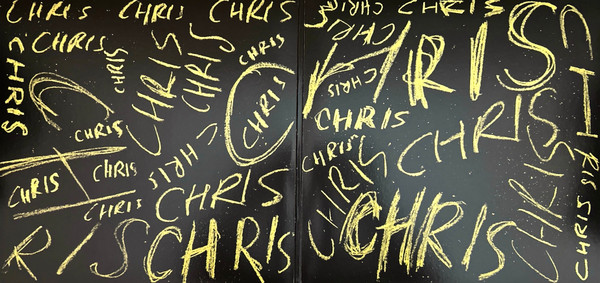 CHRIS CHRIS CHRIS
CHRIS
CHRIS
CHRIS
CHRIS
CHRIS
CHRIS
CHRIS
CHRIS
CHRIS
CHRIS
CHRIS
CHRIS
CHRIS
CHRIS
RIS
CHRIS
CHRIS
CHRIS
CHRIS
CHRIS
HRIS
CHRIS
CHRIS
CHRIS
CHRIS
CHRIS
CHRIS
CHRIS
CHRIS